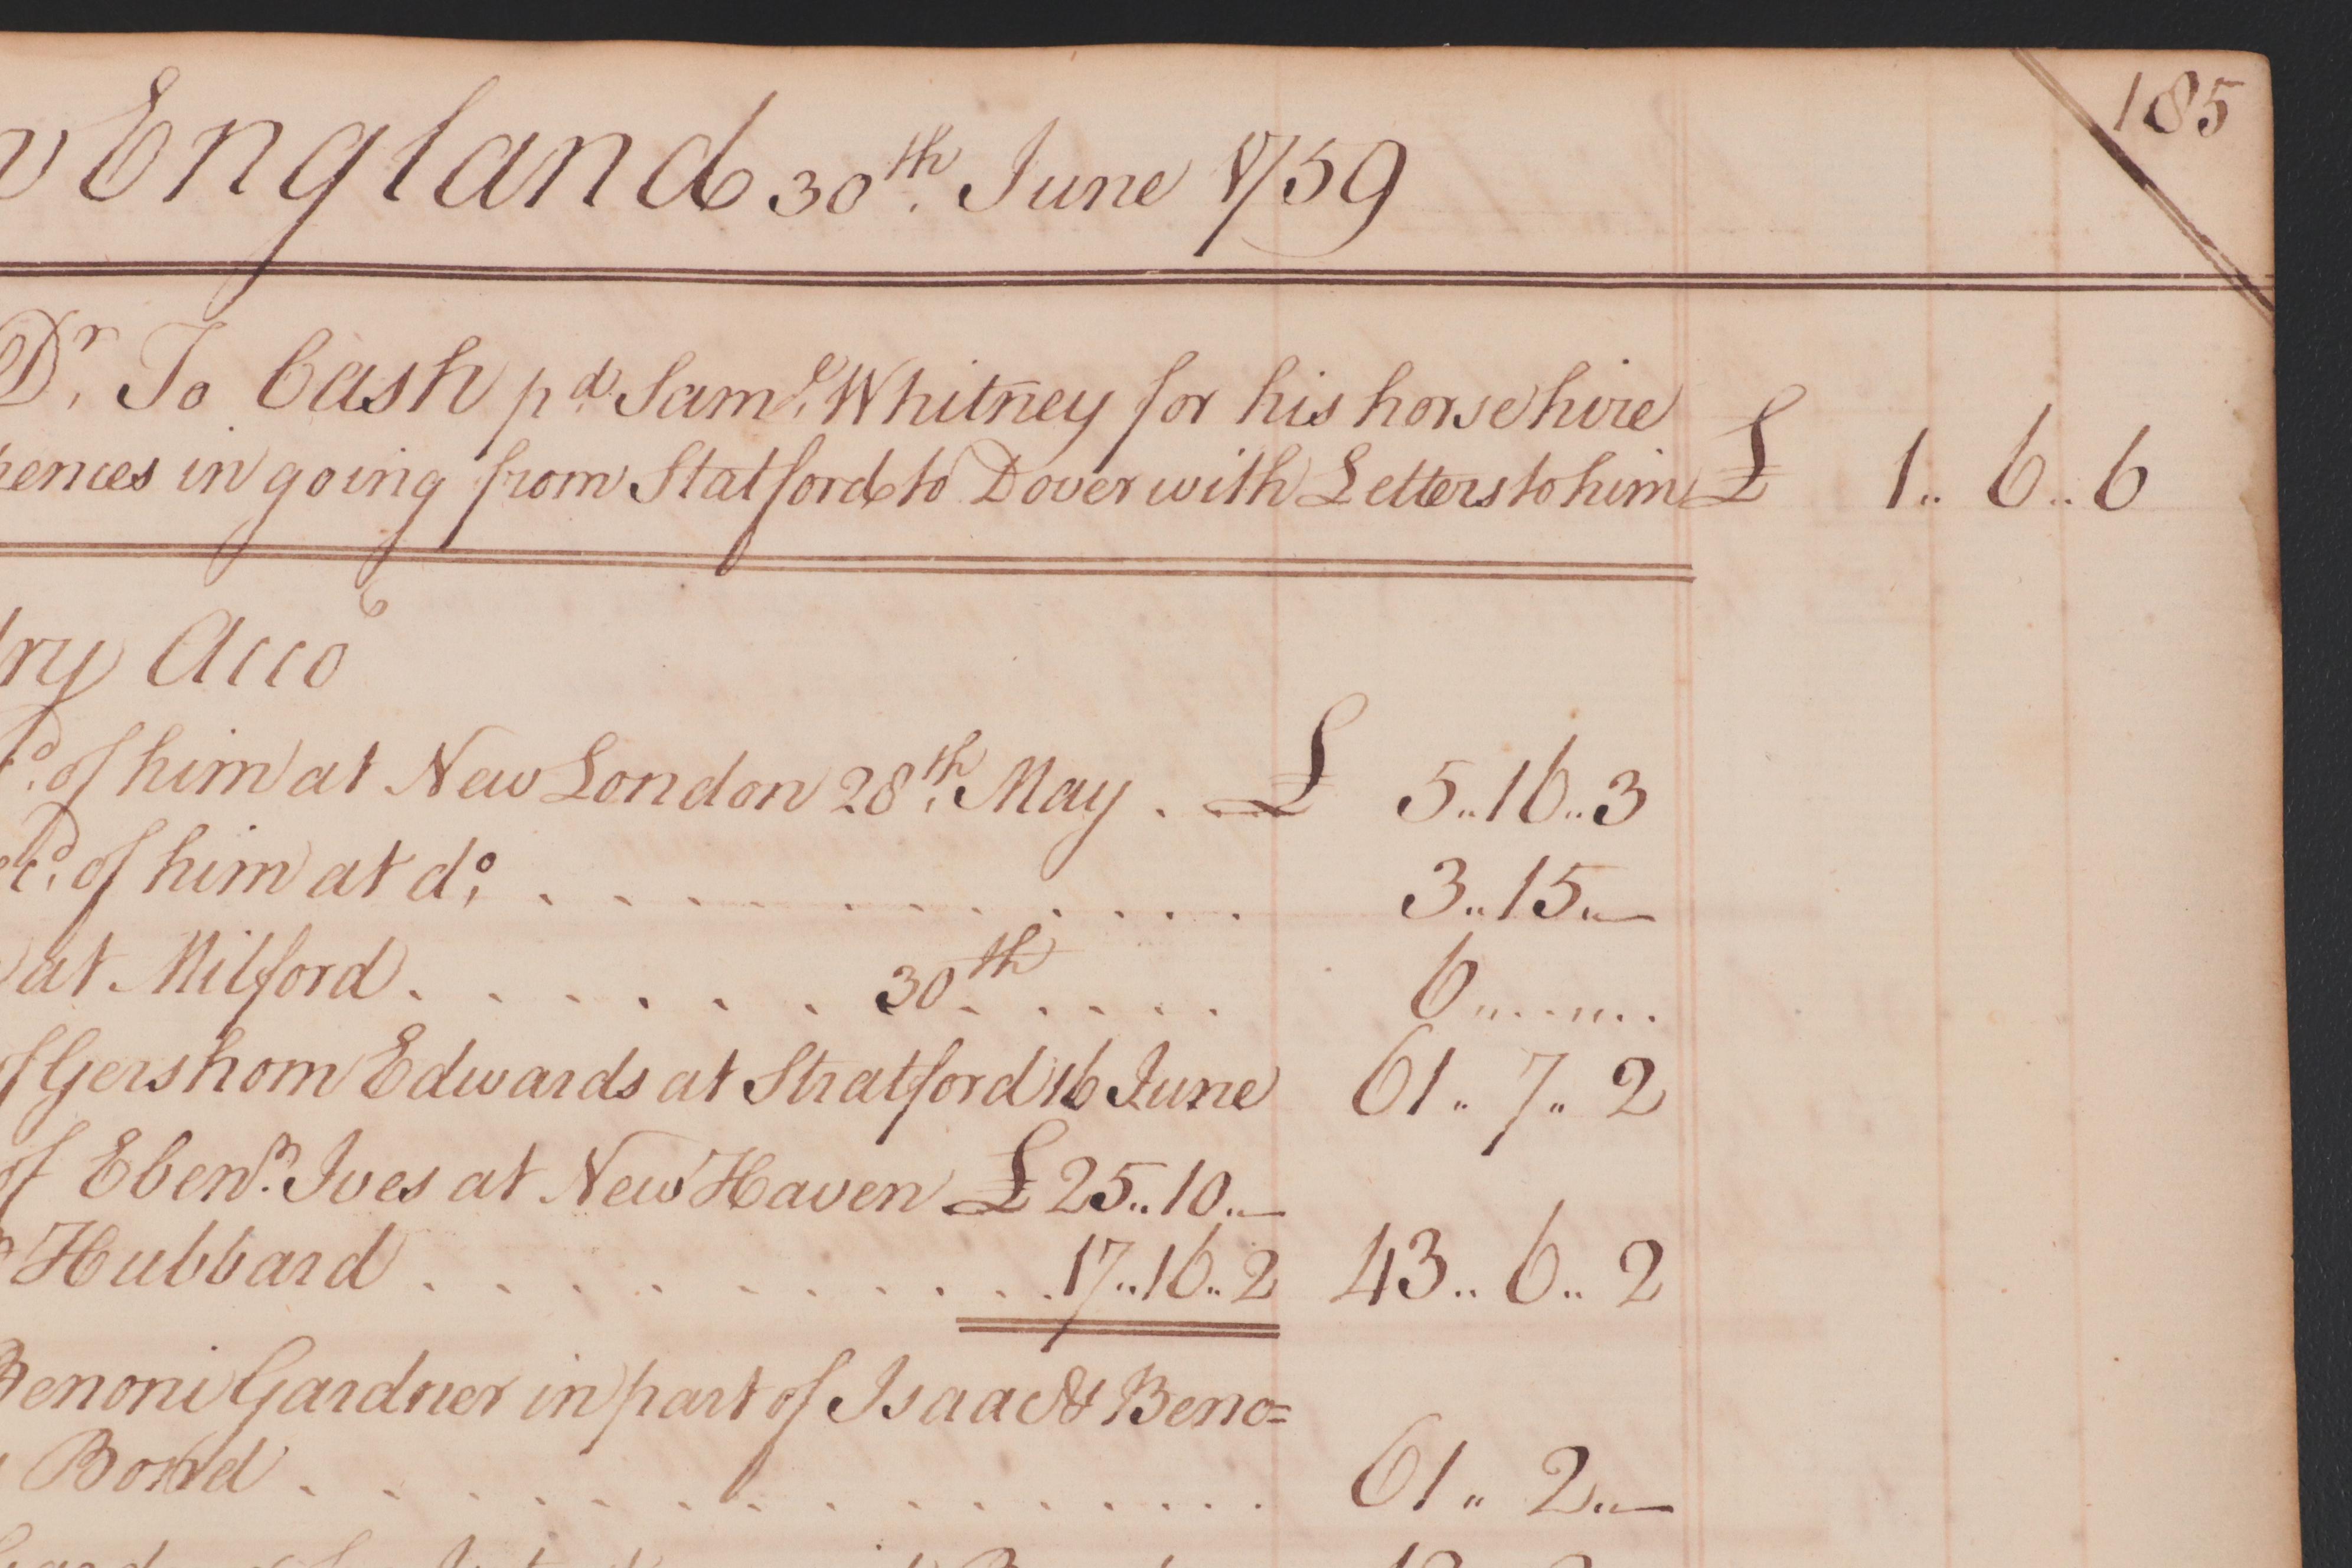 185
England 30th June 1759
Dr. To Cash pd. Saml. Whitney for his horse hire
pences in going from Statford to Dover with Letters to him £ 1.. 6.. 6
dry Acco
of him at New London 28th May . £ 5..16..3
of him at do. . . . . . . . . . . . 3..15..—
at Milford . . . . . . . 30th . . . . 6........
of Gershom Edwards at Stratford 16 June 61.. 7.. 2
of Ebenr. Ives at New Haven £25..10..—
Hubbard . . . . . . . . . . . 17..16..2 43.. 6.. 2
Benoni Gardner in part of Isaac & Beno=
Bond . . . . . . . . . . . . . . 61.. 2..—